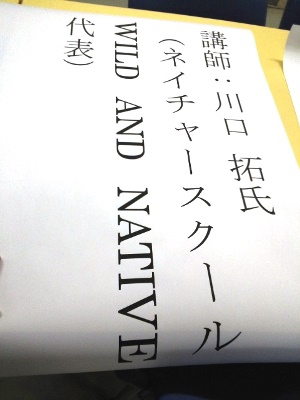 講師：川口 拓氏
（ネイチャースクール
WILD AND NATIVE
代表）